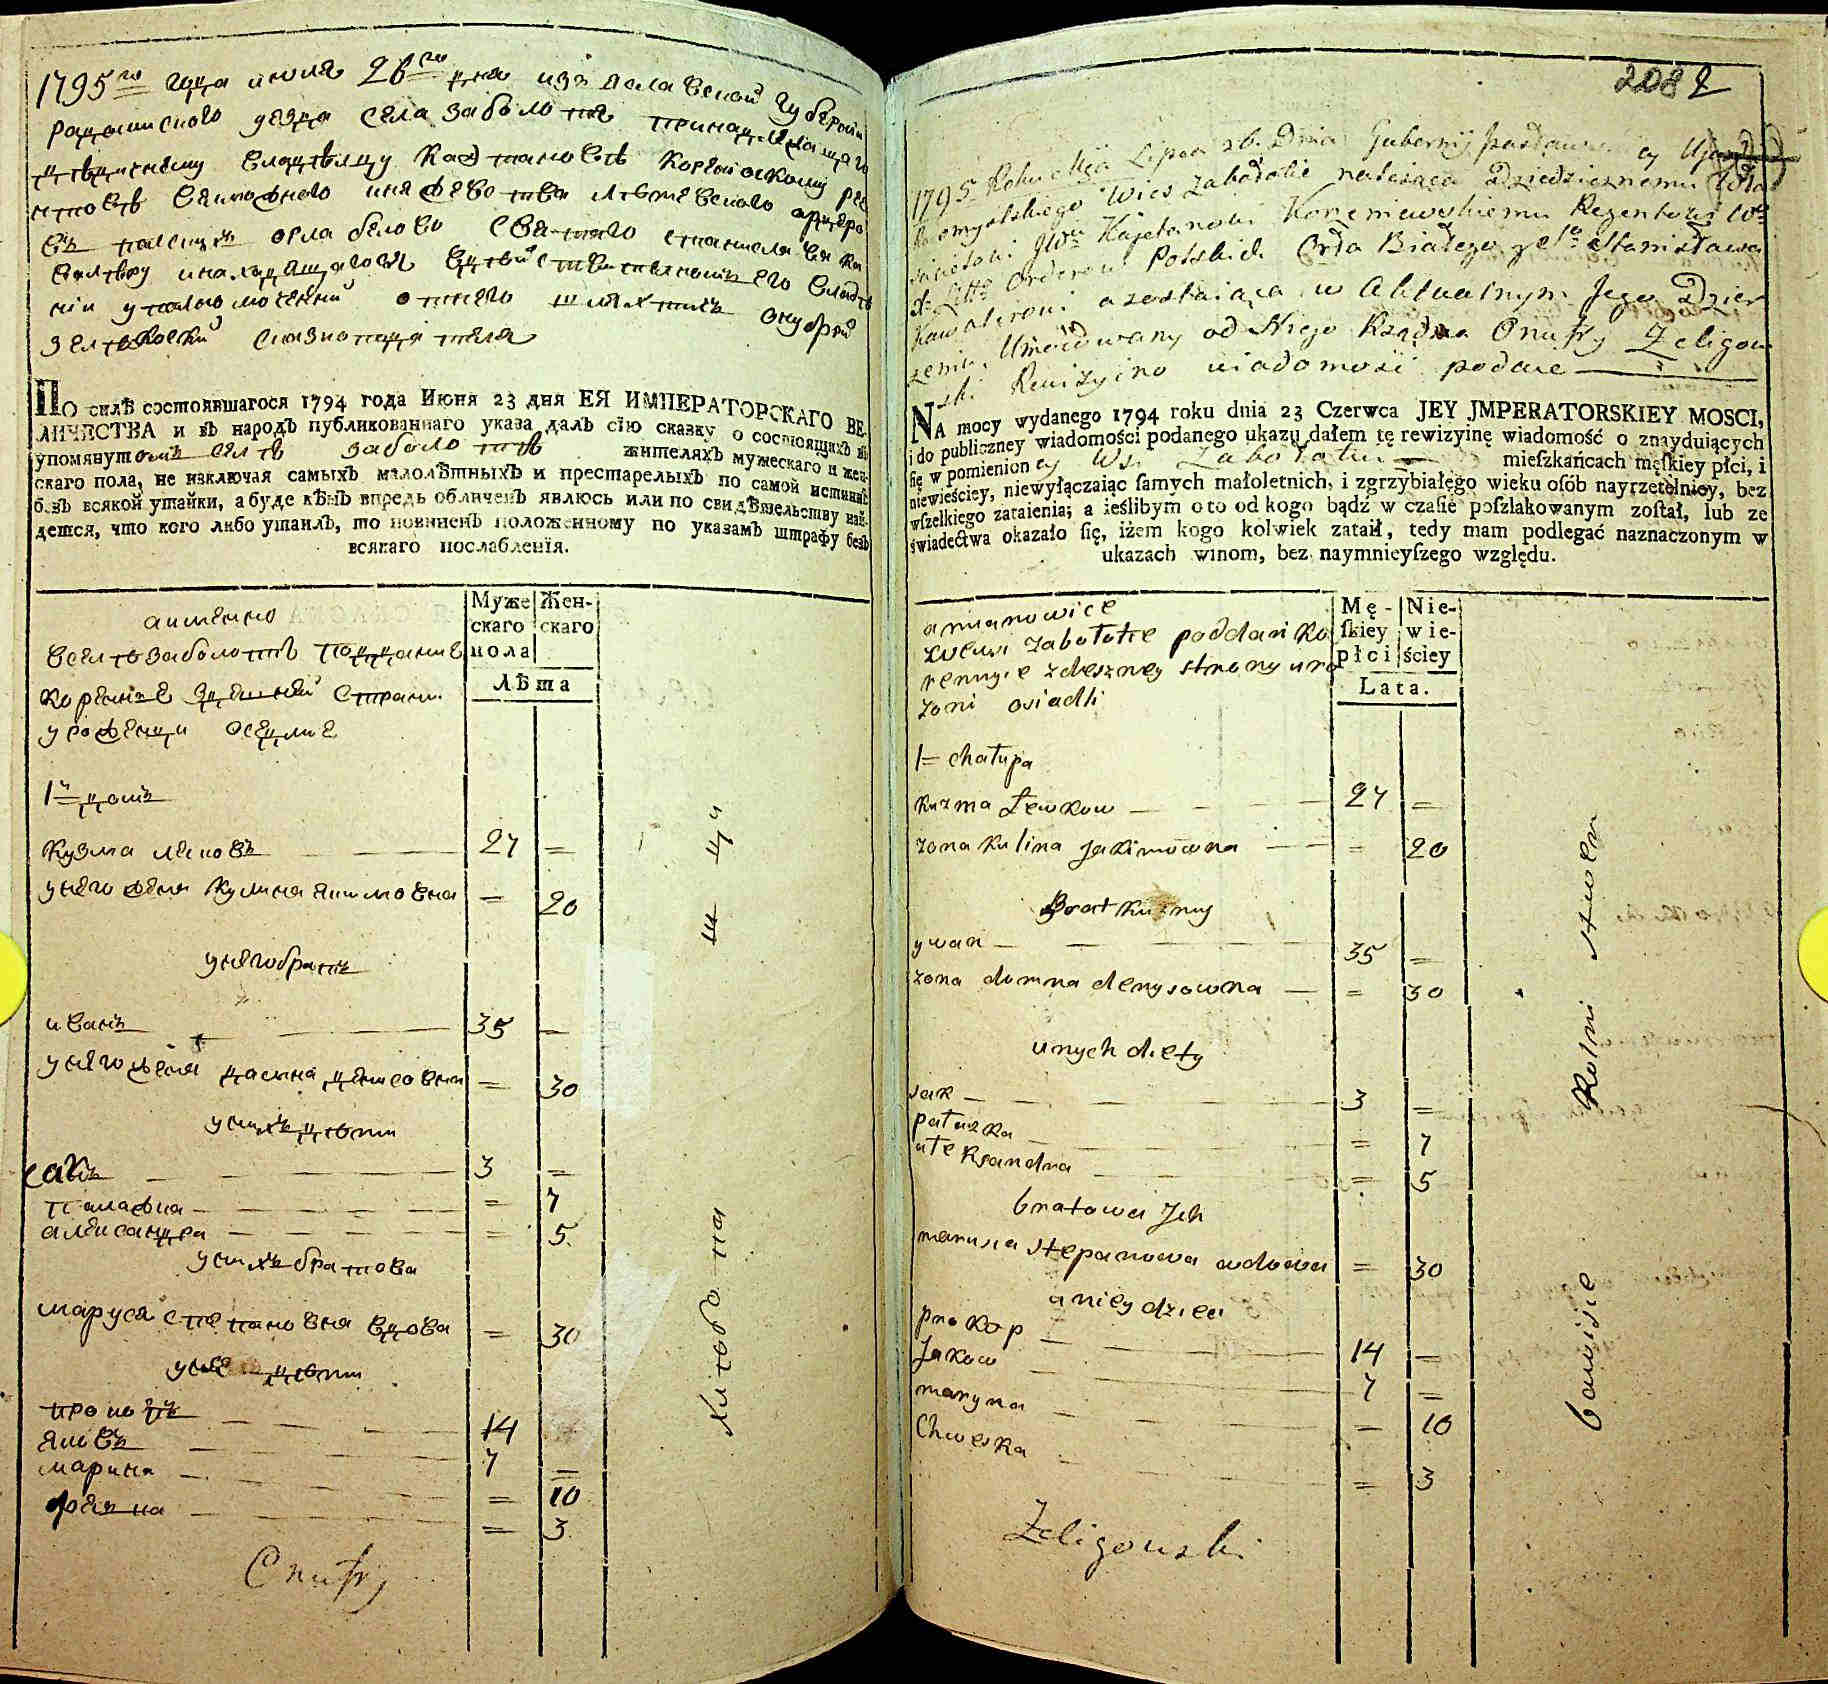 1795го года июля 26го дня изъ Изаславской губернии
радомисского уезда села Заболотя принадлежащаго
дедичному владелцу Каэтанови
Великого Княжества Литовского ордеровъ
полскихъ орла белого святаго станислава ка
валеру и находящагось в действителномъ его владе
нии уполномоченний от него шляхтичъ онуфрий
зелѣковски сказка подателя
ПО силѣ состоявшагося 1794 года Июня 23 дня ЕЯ ИМПЕРАТОРСКАГО ВЕ-
ЛИЧЕСТВА и въ народъ публикованнаго указа далъ сїю сказку о состоящихъ въ
упомянутомъ селѣ заболотѣ жителяхъ мужескаго и жен-
скаго пола, не изключая самыхъ малолѣтныхъ и престарелыхъ по самой истиннѣ
безъ всякой утайки, а буде кѣмъ впредь обличенъ явлюсь или по свидѣтельству най-
дется, что кого либо утаилъ, то повиненъ положенному по указамъ штрафу безъ
всякаго послабленїя.
а именно
Муже
скаго
пола
Жен-
скаго
в селѣ заболотѣ поддание
корение здешней страни
уроженци оседлие
Лѣта
1й домъ
Кузма лековъ 27 =
у него жена Кулина якимовна = 20
у него братъ
иванъ 35 =
у него жена домна денисовна = 30
у нихъ дети
сакъ 3 =
палажка = 7
александра = 5
у нихъ братова
маруся степановна вдова = 30
у нее дети
прокопъ 14
яковъ 7 =
марина = 10
февка = 3
Onufry
хлѣбопа
ш ци
2082
1795 Roku Msca Lipca 26. Dnia Gubernij Izasławskiey Ujazdu
Radomyslskiego Wies Zabołotie należąca Dziedzicznemu
Kajetanowi Korzeniowskiemu Regentowi Wo
X. Litto Orderow Polskich Orła Białego y So Stanisława
Kawalerowi a zostaiąca w Aktualnym Jego Dzier
zeniu, Umocowany od Niego Rządca Onufry Zeligow
ski Rewizyino wiadomosć podaie
NA mocy wydanego 1794 roku dnia 23 Czerwca JEY JMPERATORSKIEY MOSCI,
i do publiczney wiadomości podanego ukazu dałem tę rewizyinę wiadomość o znayduiących
się w pomienioney Wsi Zabołotiu mieſzkańcach męſkiey płci, i
niewieściey, niewyłączaiąc ſamych małoletnich, i zgrzybiałęgo wieku oſób nayrzetelniey, bez
wſzelkiego zataienia; a ieślibym o to od kogo bądź w czaſie poſzlakowanym zoſtał, lub ze
świadectwa okazało ſię, iżem kogo kolwiek zataił, tedy mam podlegać naznaczonym w
ukazach winom, bez naymnieyſzego względu.
a mianowice
Mę-
ſkiey
płci
Nie-
wie-
ściey
zwewsi Zabołotie poddani ko
rennyie zdeszney strony uro
zoni osiadli
Lata.
1= chałupa
kuzma Lewkow 27 =
zona kulina Jakimowna = 20
Brat kuzmy
ywan 35 =
zona domna denysowna = 30
unych diety
sak 3 =
pałazka = 7
ałeksandra = 5
bratowa Jch
marusia stepanowa wdowa = 30
a niey dzieci
prokop 14 =
Jakow 7 =
maryna = 10
Chweska = 3
Zeligowski
Rolni